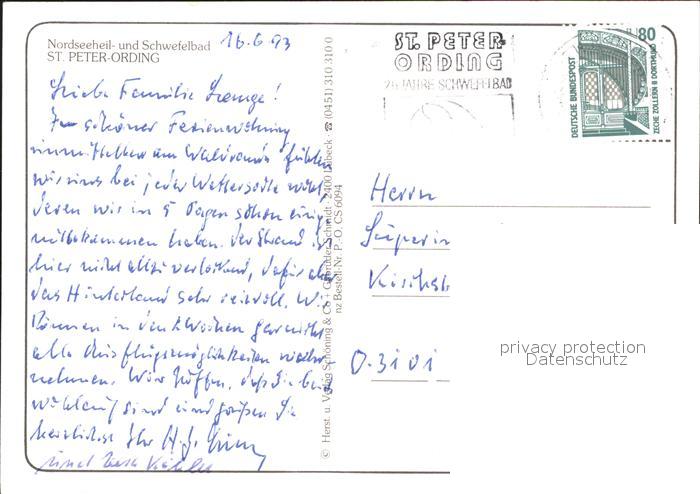 Nordseeheil- und Schwefelbad 16.6.93
ST. PETER-ORDING
Liebe Familie Lange!
In schöner Ferienwohnung
unmittelbar am Waldrand fühlen
wir uns bei jeder Wetterseite wohl,
deren wir in 5 Tagen schon einige
mitbekommen haben. Der Strand ist
hier nicht allzu verlockend, dafür aber
das Hinterland sehr reizvoll. Wir
können in den 2 Wochen gar nicht
alle Ausflugsmöglichkeiten wahr-
nehmen. Wir hoffen, daß Sie
wohlauf sind und grüßen Sie
herzlichst Ihr H.J.
und
© Herst. u. Verlag Schöning & Co + Gebrüder Schmidt · 2400 Lübeck ☎ (0451) 310 310 0
nz Bestell-Nr. P.-O. CS 6094
ST. PETER-
ORDING
JAHRE SCHWEFELBAD
DEUTSCHE BUNDESPOST
80
ZECHE ZOLLERN II DORTMUND
Herrn
Superin
Kirchst
D-3101
privacy protection
Datenschutz